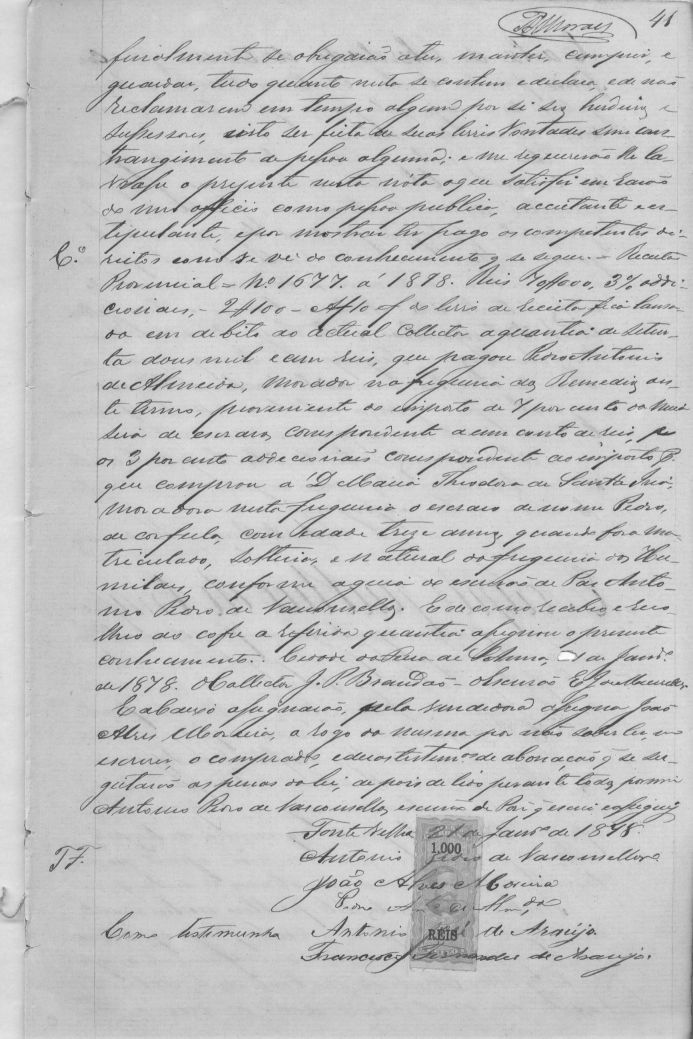 BMoraes 41
finalmente se obrigarão a ter, manter, cumprir, e
guardar, tudo quanto nesta se contem e declara, e de não
reclamarem em tempo algum por si seus herdeiros e
sussessores, visto ser feita de suas livres vontades sem cons
trangimento de pessoa alguma; e me requererão lhe la-
vrasse o prezente nesta nóta o que satisfis em razão
do meu officio como pessoa publica, aceitante e es-
tipulante, e por mostrar ter pago os competentes di-
C.º reitos como se vê do conhecimento q se segue. = Receita
Provincial = Nº 1677. á 1878. Reis 70$000, 3% addi-
cionais, - 2$100 - Af 10 do livro de receita fica lança-
da em debito ao actual Collector a quantia de seten-
ta dous mil e cem reis, que pagou Pedro Antonio
de Almeida, morador na freguesia dos Remedios des-
te termo, proveniente do imposto de 7 por cento da meia
siza de escravos correspondente a um conto de reis, e
os 3 por cento addecionais correspondente ao imposto P.
que comprou a D. Maria Theodora de
moradora nesta freguesia o escravo de nome Pedro,
de cor fula, com idade treze annos, quando fora ma-
triculado, solteiro, e natural da freguesia dos Hu-
mildes, conforme a guia do escrivão de Paz Anto-
nio Pedro de Vasconsellos. E de como recebeo e reco-
lheo ao cofre a referida quantia assignou o presente
conhecimento. Cidade da Feira de de Janrº
de 1878. O Collector J. P. Brandão - O escrivão
E abaixo assignarão, pela vendedora assigna João
Alves Moreira, a rogo da mesma por não saber ler nem
escrever, o comprador, e de duas testemas de abonação q se su-
geitarão as penas da lei, depois de lido perante todos por mim
Antonio Pedro de Vasconsellos escrivão de Paz q escrevi e assignei
Fonte Velha 21 de Janrº de 1878.
1.000
TF. Antonio Pedro de Vasconsellos
João Alves Moreira
Pedro Antº de Almda
Como testemunha Antonio José de Araujo.
REIS
Francisco Fernandes de Araujo.